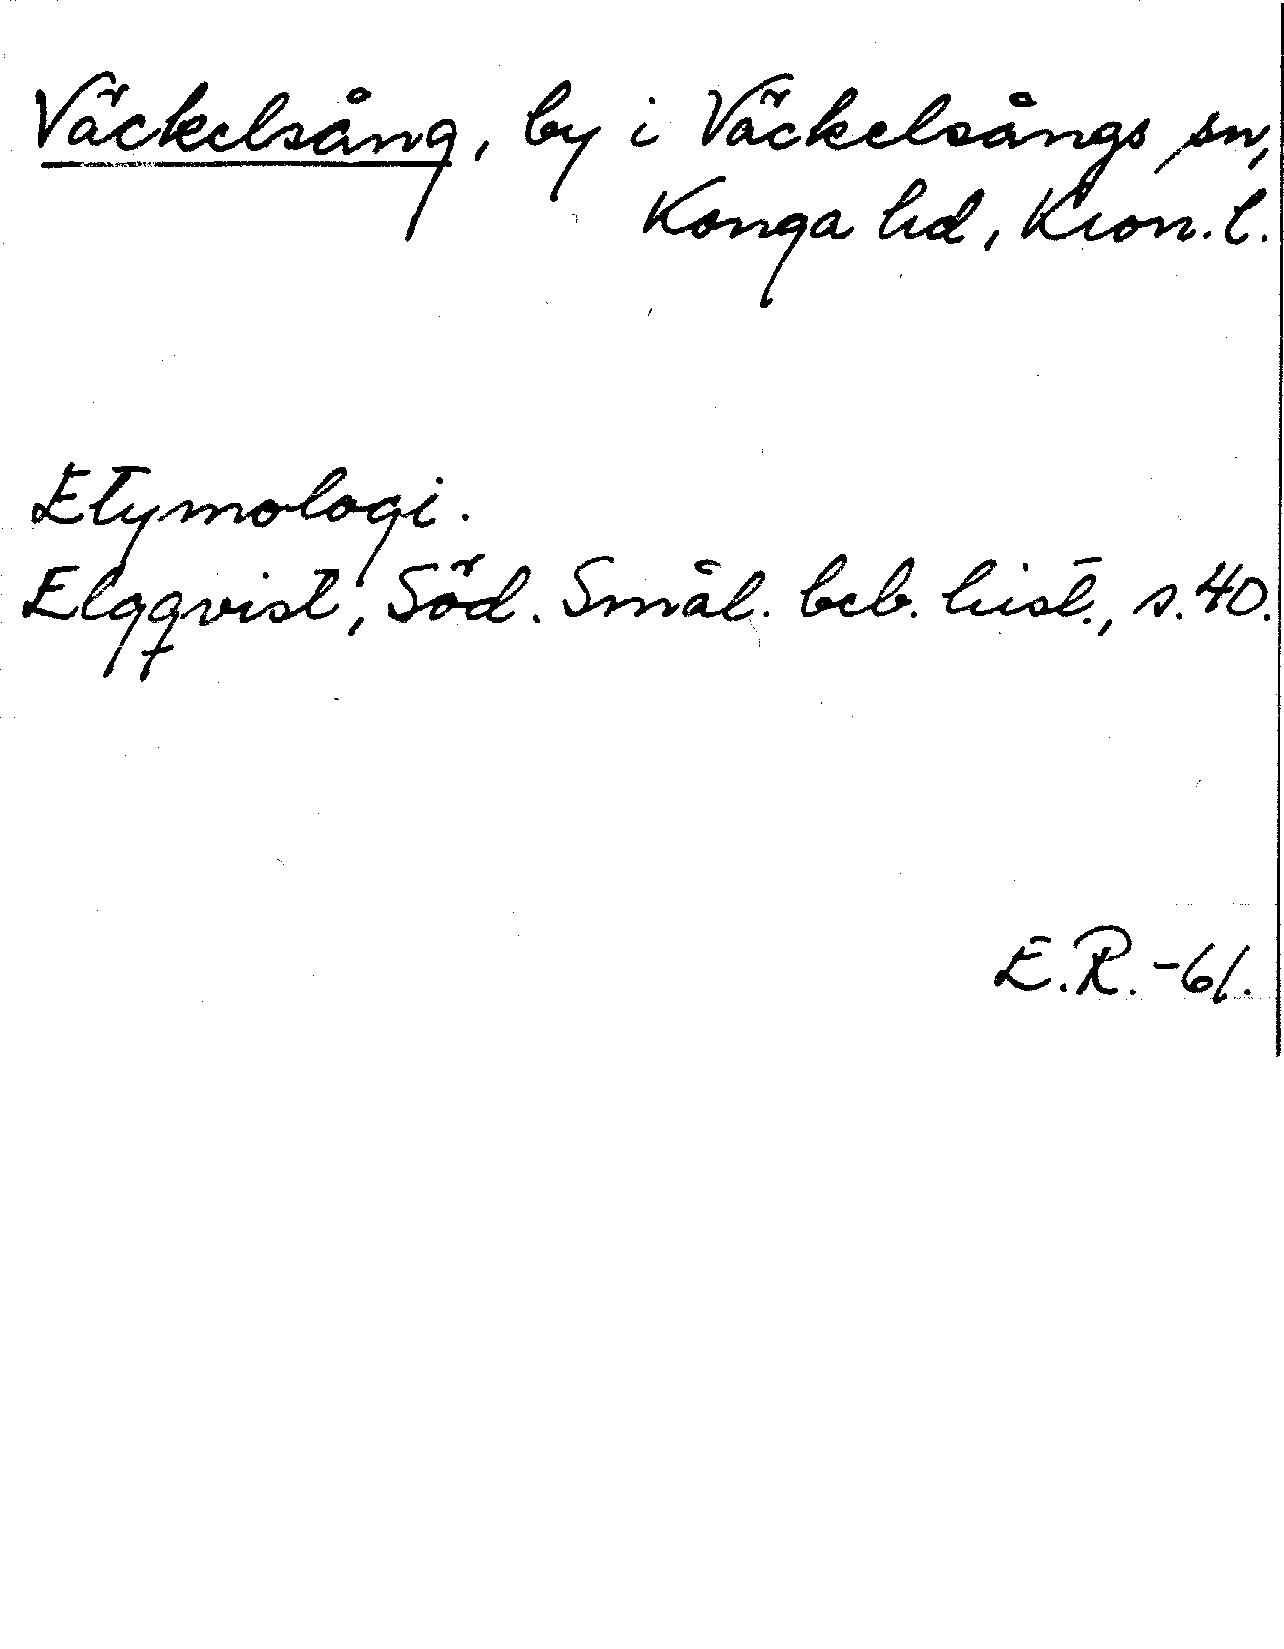 Väckelsång, by i Väckelsångs sn,
Konga hd, Kron. l.
Etymologi.
Elgqvist, Söd. Smål. beb. hist., s. 40.
E.R. -61.